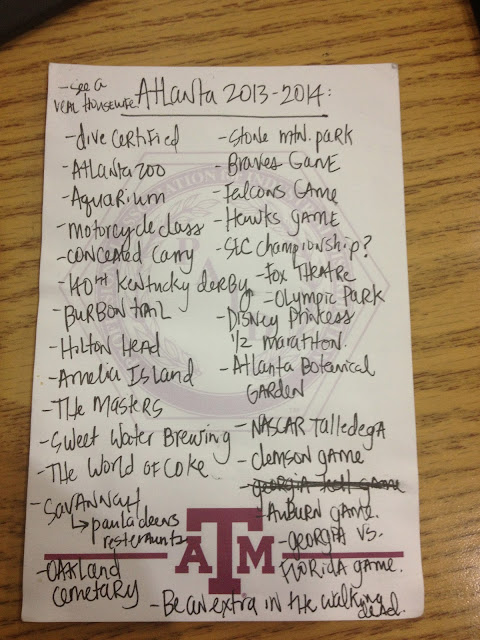 -see a
real housewife
Atlanta 2013-2014:
-dive certified
-Atlanta zoo
-Aquarium
-motorcycle class
-concealed carry
-140th Kentucky derby
-Burbon trail
-Hilton Head
-Amelia Island
-The Masters
-Sweet Water Brewing
-The World of Coke
-Savannah
↳paula deens
resteraunts
-Oakland
cemetary
-Stone mtn. park
-Braves Game
-Falcons Game
-Hawks game
-SEC championship?
-Fox Theatre
-Olympic Park
-Disney Princess
1/2 marathon.
-Atlanta Botanical
Garden
-NASCAR Talledega
-Clemson game
-Georgia tech game
-Auburn game.
-Georgia vs.
Florida game.
-Be an extra in the walking
dead.
ATM